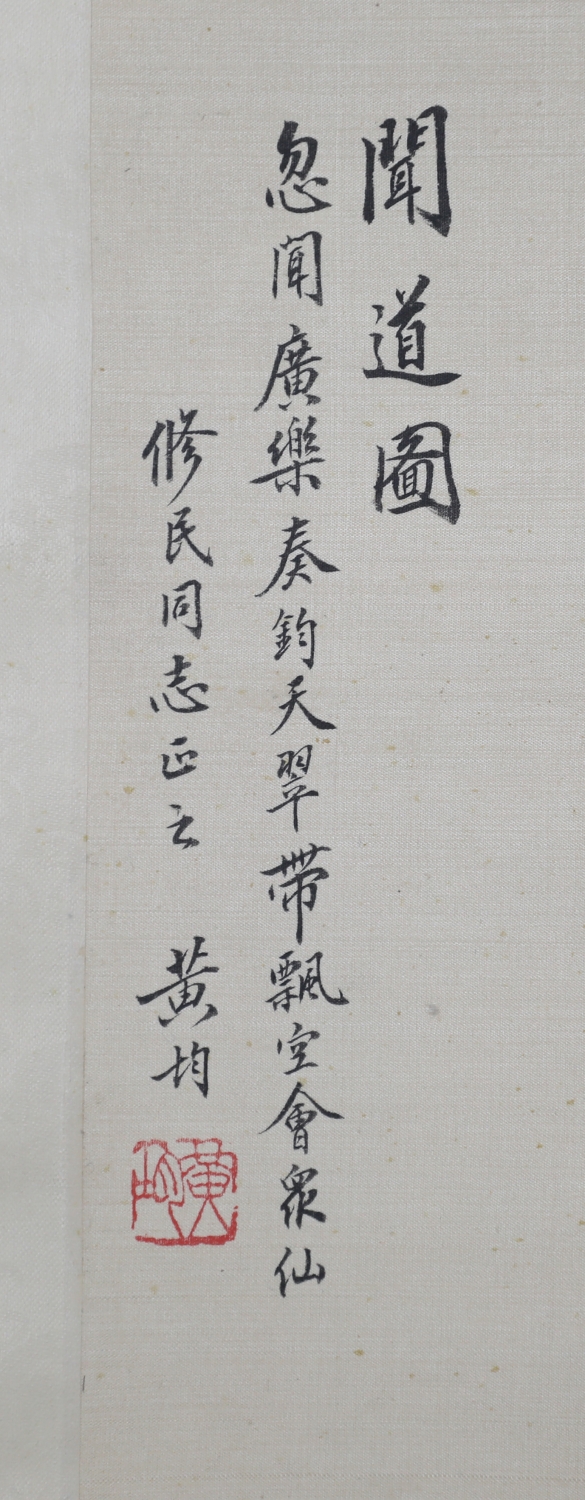 聞道圖
忽聞廣樂奏鈞天翠帶飄空會衆仙
修民同志正之
黃均
黃均